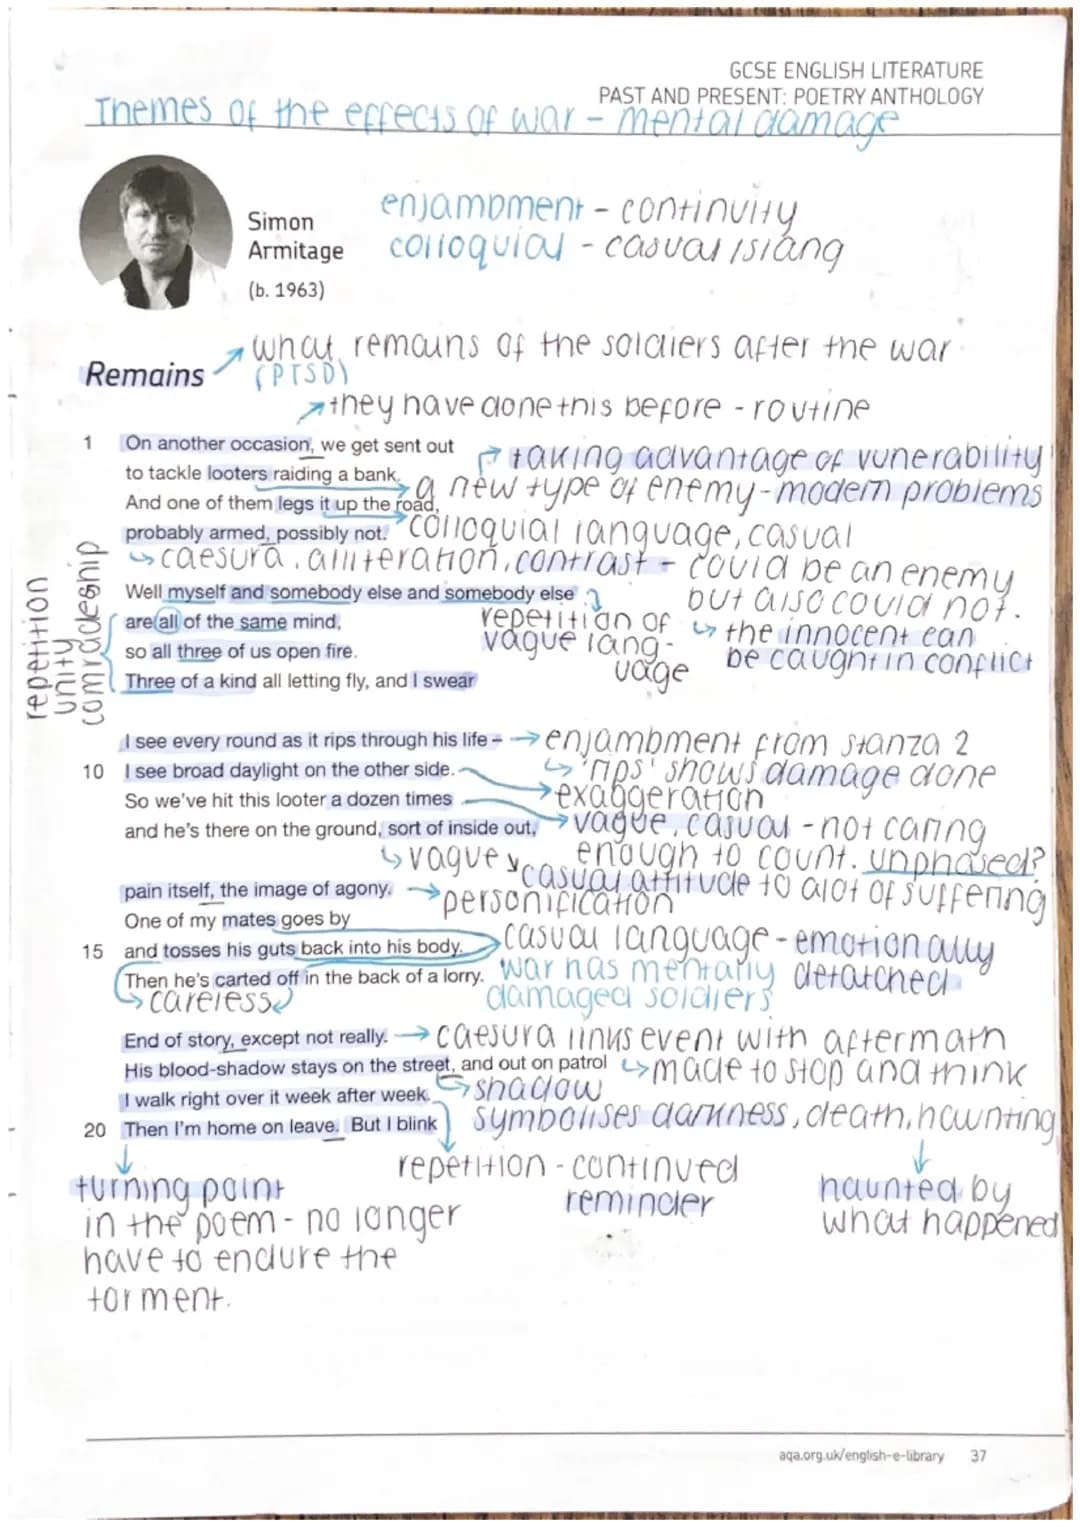 GCSE ENGLISH LITERATURE
PAST AND PRESENT: POETRY ANTHOLOGY
Themes of the effects of war - mental damage
Simon
Armitage
(b. 1963)
enjambment - continuity
colloquial - casual/slang
what remains of the soldiers after the war
(PTSD)
Remains
they have done this before - routine
1 On another occasion, we get sent out
to tackle looters raiding a bank.
taking advantage of vunerability
a new type of enemy - modern problems
And one of them legs it up the road,
probably armed, possibly not.
colloquial language, casual
caesura, alliteration, contrast - could be an enemy
but also could not.
Well myself and somebody else and somebody else
are all of the same mind,
so all three of us open fire.
Three of a kind all letting fly, and I swear
repetition of
vague lang-
uage
the innocent can
be caught in conflict
repetition
unity
comradeship
I see every round as it rips through his life –
enjambment from stanza 2
10 I see broad daylight on the other side.
'rips' shows damage done
exaggeration
So we've hit this looter a dozen times
and he's there on the ground, sort of inside out,
vague, casual - not caring
enough to count. unphased?
vague
casual attitude to alot of suffering
pain itself, the image of agony.
personification
One of my mates goes by
15 and tosses his guts back into his body.
casual language - emotionally
detatched
Then he's carted off in the back of a lorry.
careless
war has mentally
damaged soldiers
End of story, except not really.
caesura links event with aftermath
His blood-shadow stays on the street, and out on patrol
made to stop and think
I walk right over it week after week.
shadow
symbolises darkness, death, haunting
20 Then I'm home on leave. But I blink
repetition - continued
reminder
haunted by
what happened
turning point
in the poem - no longer
have to endure the
torment.
aqa.org.uk/english-e-library 37